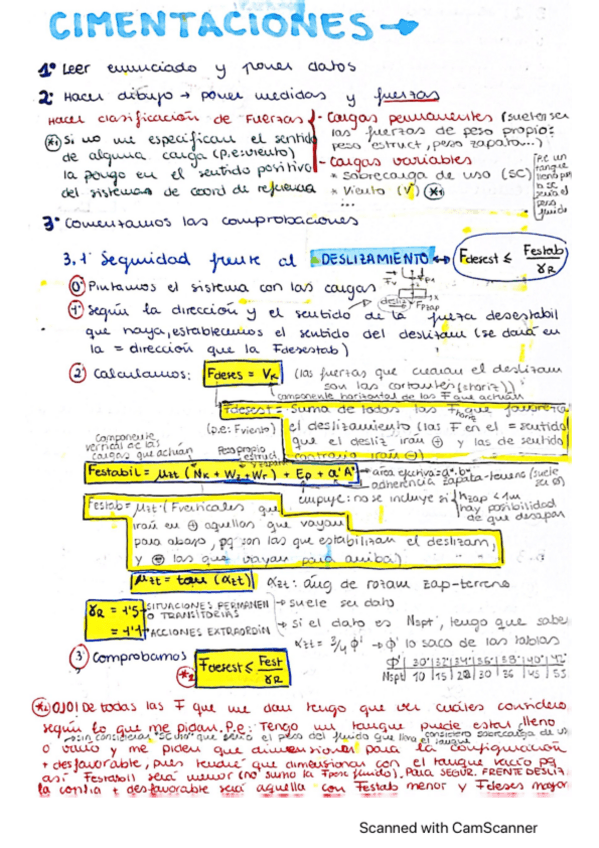 CIMENTACIONES →
1º Leer enunciado y poner datos
2º Hacer dibujo → poner medidas y fuerzas
Hacer clasificación de Fuerzas
- Cargas permanentes (suelen ser
las fuerzas de peso propio:
peso estruct, peso zapata...)
- Cargas variables
* sobrecarga de uso (SC)
* Viento (V) (*1)
...
(*1) Si no me especifican el sentido
de alguna carga (p.e: viento)
la pongo en el sentido positivo
del sistema de coord de referencia
3º Comenzamos las comprobaciones
3.1 Seguridad frente al DESLIZAMIENTO ↔ Fdesest ≤ Festab / γR
0 Pintamos el sistema con las cargas
1 Según la dirección y el sentido de la fuerza desestabil
que haya, establecemos el sentido del deslizam (se dará en
la = dirección que la Fdesestab)
2 Calculamos: Fdeses = VK (las fuerzas que crearán el deslizam
son las cortantes (horiz))
componente horizontal de las F que actúan
Fdesest = Suma de todas las F horiz
(p.e: Fviento) el deslizamiento (las F en el = sentido
que el desliz irán ⊕ y las de sentido
contrario irán ⊖)
componente
vertical de las
cargas que actúan
Peso propio
estruct
y zapata
Festabil = μzt (NK + WZ + WT) + Ep + a' A' → área efectiva = a*·b*
adherencia zapata-terreno (suele
ser 0)
empuje: no se incluye si hzap < 1m
hay posibilidad
de que desapar
Festab = μzt · (Fverticales que
irán en ⊕ aquellas que vayan
para abajo, pq son las que estabilizan el deslizam,
y ⊖ las que vayan para arriba)
μzt = tan (αzt) αzt: áng de rozam zap-terreno
γR = 1'5 → SITUACIONES PERMANEN
O TRANSITORIAS
= 1'1 → ACCIONES EXTRAORDIN
→ suele ser dato
→ si el dato es Nspt, tengo que saber
αzt = 3/4 φ' → φ' lo saco de las tablas
φ' | 30° | 32° | 34° | 36° | 38° | 40° | 42°
Nspt | 10 | 15 | 22 | 30 | 36 | 45 | 55
3 Comprobamos Fdesest ≤ Fest / γR
*2
(*2) OJO! De todas las F que me dan tengo que ver cuáles considero
según lo que me pidan. P.e: Tengo un tanque puede estar lleno
o vacío y me piden que dimensiones para la configuración
+ desfavorable, pues tendré que dimensionar con el tanque vacío pq
así Festabil será menor (no sumo la Fpeso fluido). Para SEGUR. FRENTE DESLIZ
la config + desfavorable será aquella con Festab menor y Fdeses mayor
Scanned with CamScanner